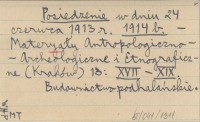 Posiedzenie w dniu 24
czerwca 1913 r. 1914 b. -
Materyały Antropologiczno -
- Archeologiczne i Etnograficz-
ne (Kraków) 13: XVII - XIX
Budownictwo podhalańskie.